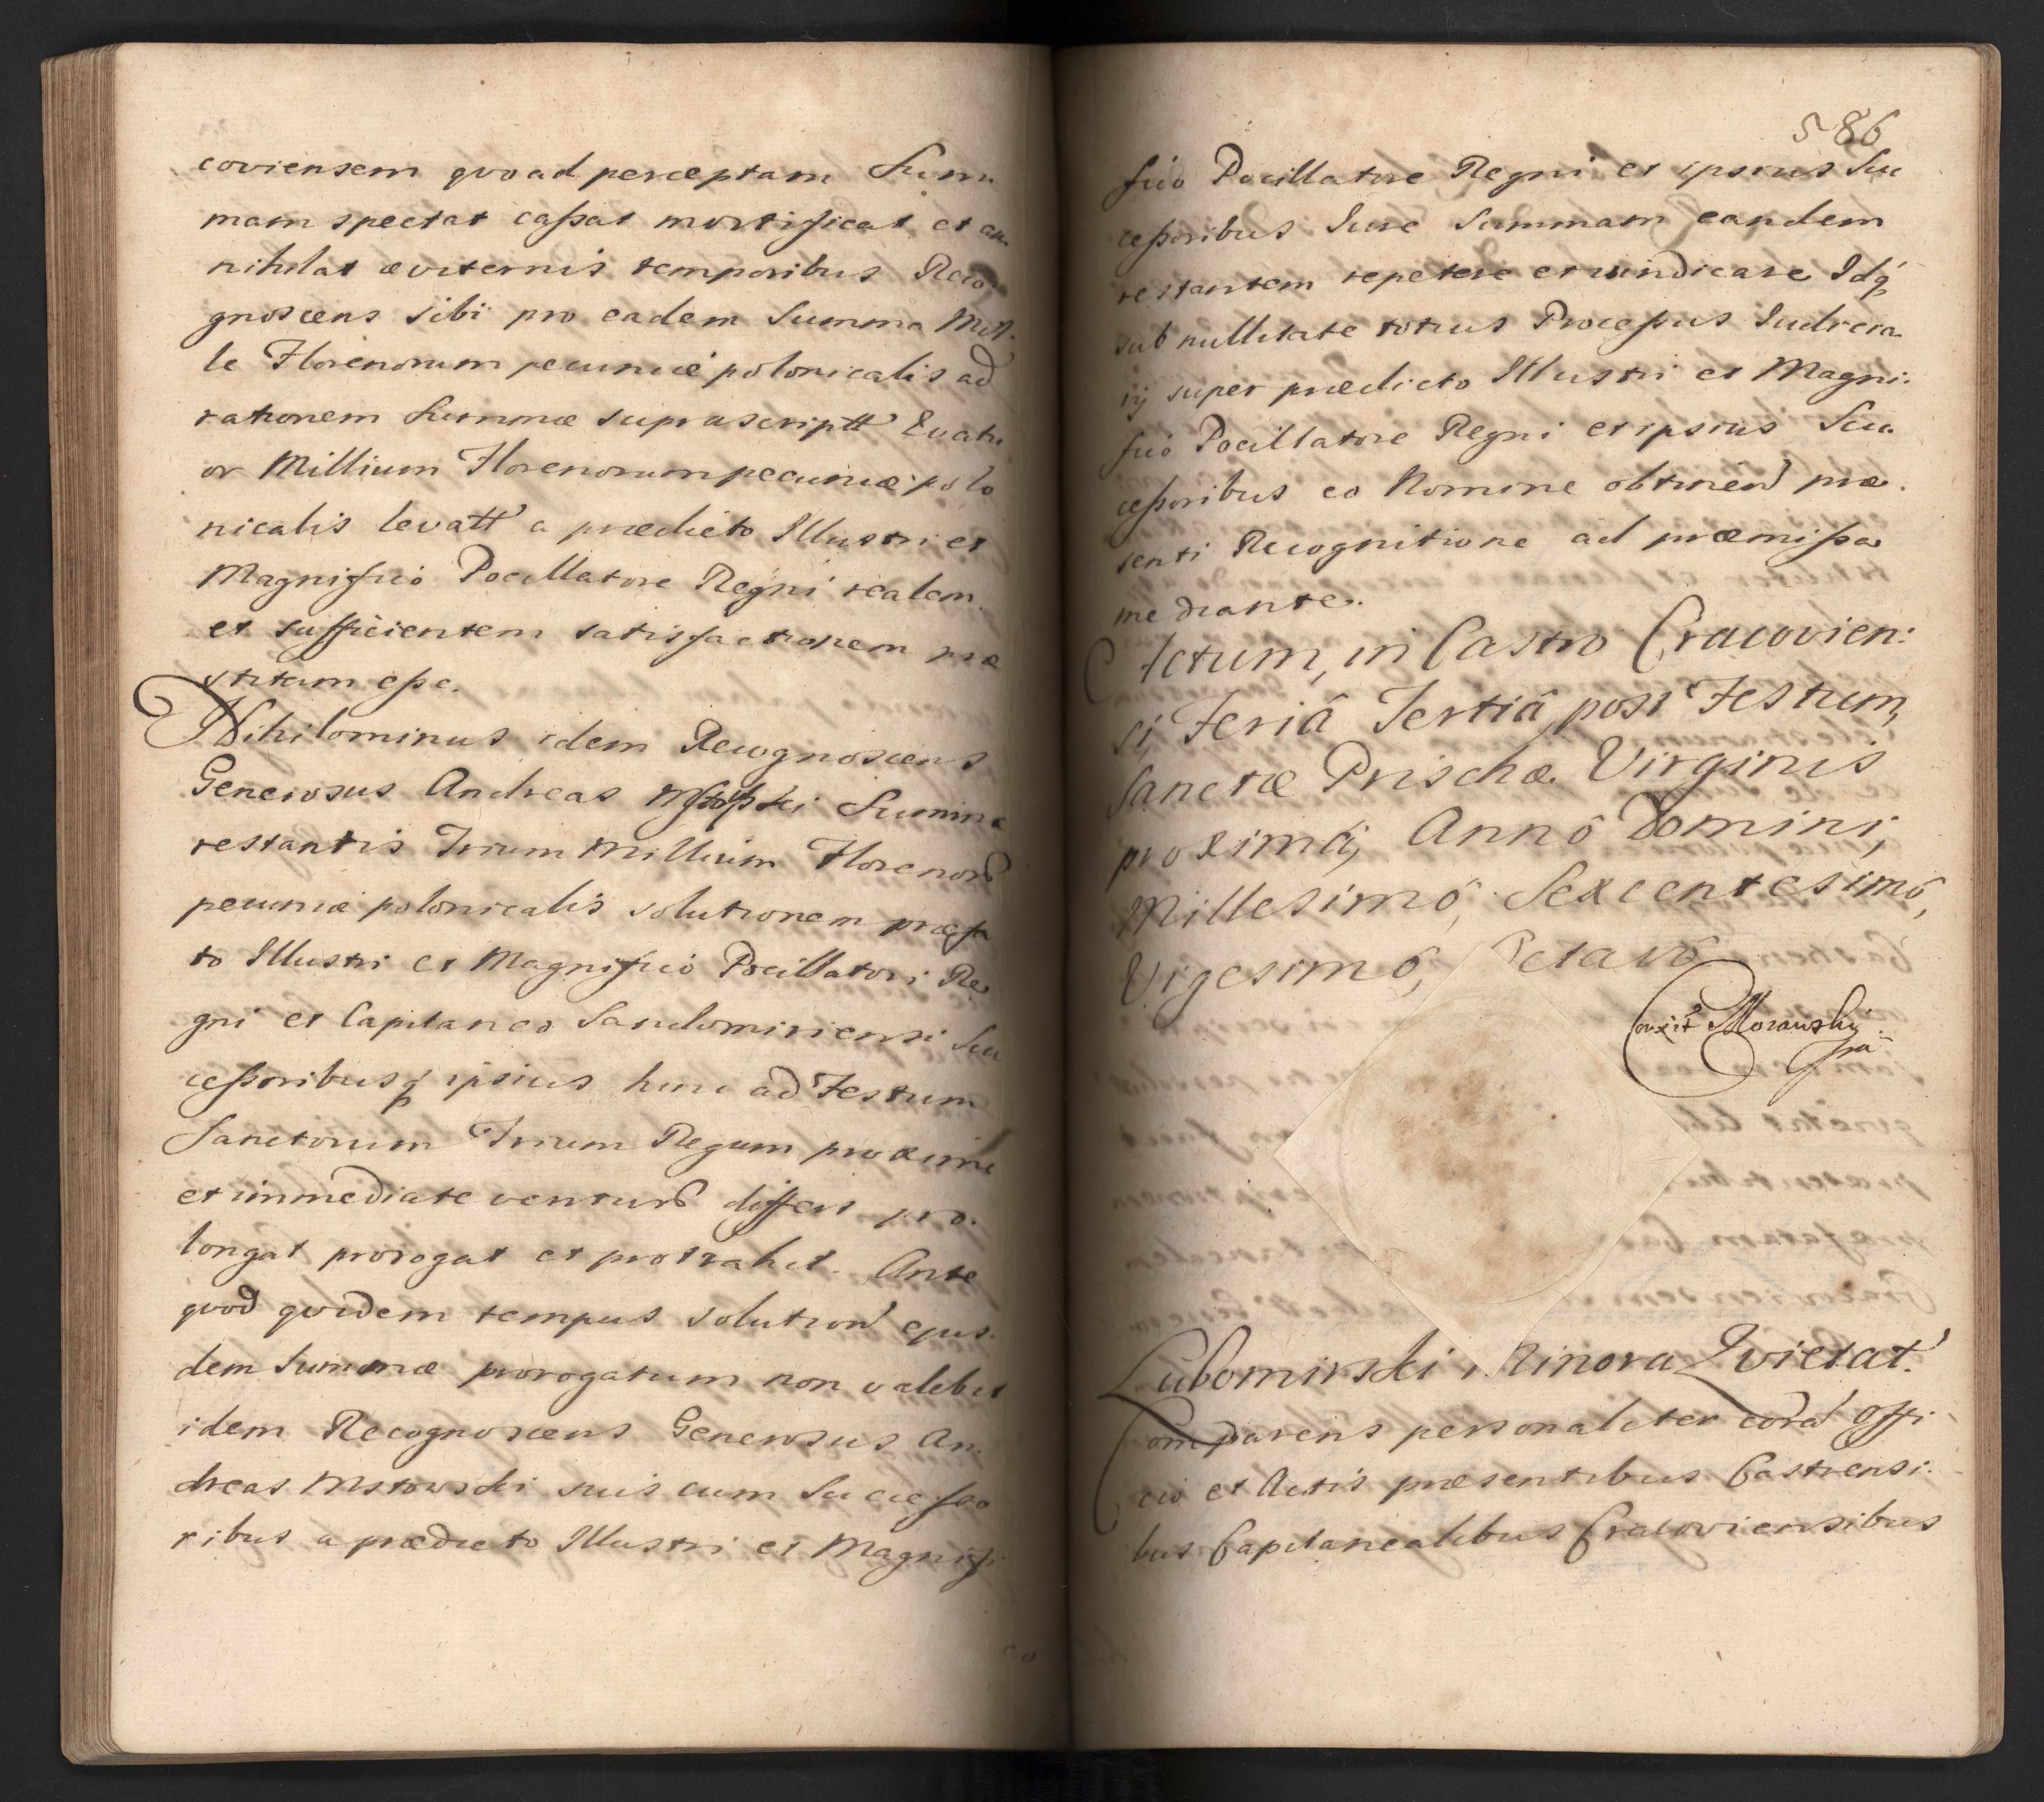 coviensem quoad perceptam Sum
mam spectat cassat mortificat et an
nihilat æviternis temporibus Reco
gnoscens sibi pro eadem Summa Mil
le Florenorum pecuniæ polonicalis ad
rationem Summæ suprascriptt Quatu
or Millium Florenorum pecuniæ polo
nicalis levatt a prædicto Illustri et
Magnifico Pocillatore Regni realem
et sufficientem satisfactionem præ
stitam esse.
Nihilominus idem Recognoscens
Generosus Andreas Summæ
restantis Trium Millium Florenor
pecuniæ polonicalis solutionem præfa
to Illustri et Magnifico Pocillatori Re
gni et Capitaneo Sandomiriensi Suc
cessoribusq ipsius hinc ad Festum
Sanctorum Trium Regum proxime
et immediate ventur differt pro
longat prorogat et protrahit. Ante
quod quidem tempus solution ejus
dem Summæ prorogatum non valebit
idem Recognoscens Generosus An
dreas Mstowski suis cum Successo
ribus a prædicto Illustri et Magnifi
586
fico Pocillatore Regni et ipsius Suc
cessoribus Jure Summam eandem
restantem repetere et vindicare Idq
sub nullitate totius Processus Judicia
rij super prædicto Illustri et Magni
fico Pocillatore Regni et ipsius Suc
cessoribus eo Nomine obtinend præ
senti Recognitione ad præmissa
mediante.
Actum, in Castro Cracovien:
si, Feriâ Tertiâ post Festum,
Sanctæ Prischæ Virginis
proximâ, Annô Domini,
Millesimô, Sexcentesimô,
Vigesimô, Octavô
Conxit Morawskij
Lubomirski Minora Qvietat
Comparens personaliter corā Offi
cio et Actis præsentibus Castrensi
bus Capitanealibus Cracoviensibus